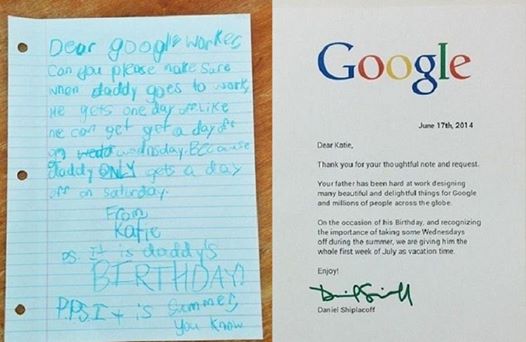 Dear google worker,
Can you please make sure
when daddy goes to work,
He gets one day off. Like
he can get get a day off
on wedd wednesday. Because
daddy ONLY gets a day
off on saturday.
From
Katie
P.S. It is daddy's
BIRTHDAY!
P.P.S. It is Summer,
you know
Google
June 17th, 2014
Dear Katie,
Thank you for your thoughtful note and request.
Your father has been hard at work designing
many beautiful and delightful things for Google
and millions of people across the globe.
On the occasion of his Birthday, and recognizing
the importance of taking some Wednesdays
off during the summer, we are giving him the
whole first week of July as vacation time.
Enjoy!
Daniel Shiplacoff